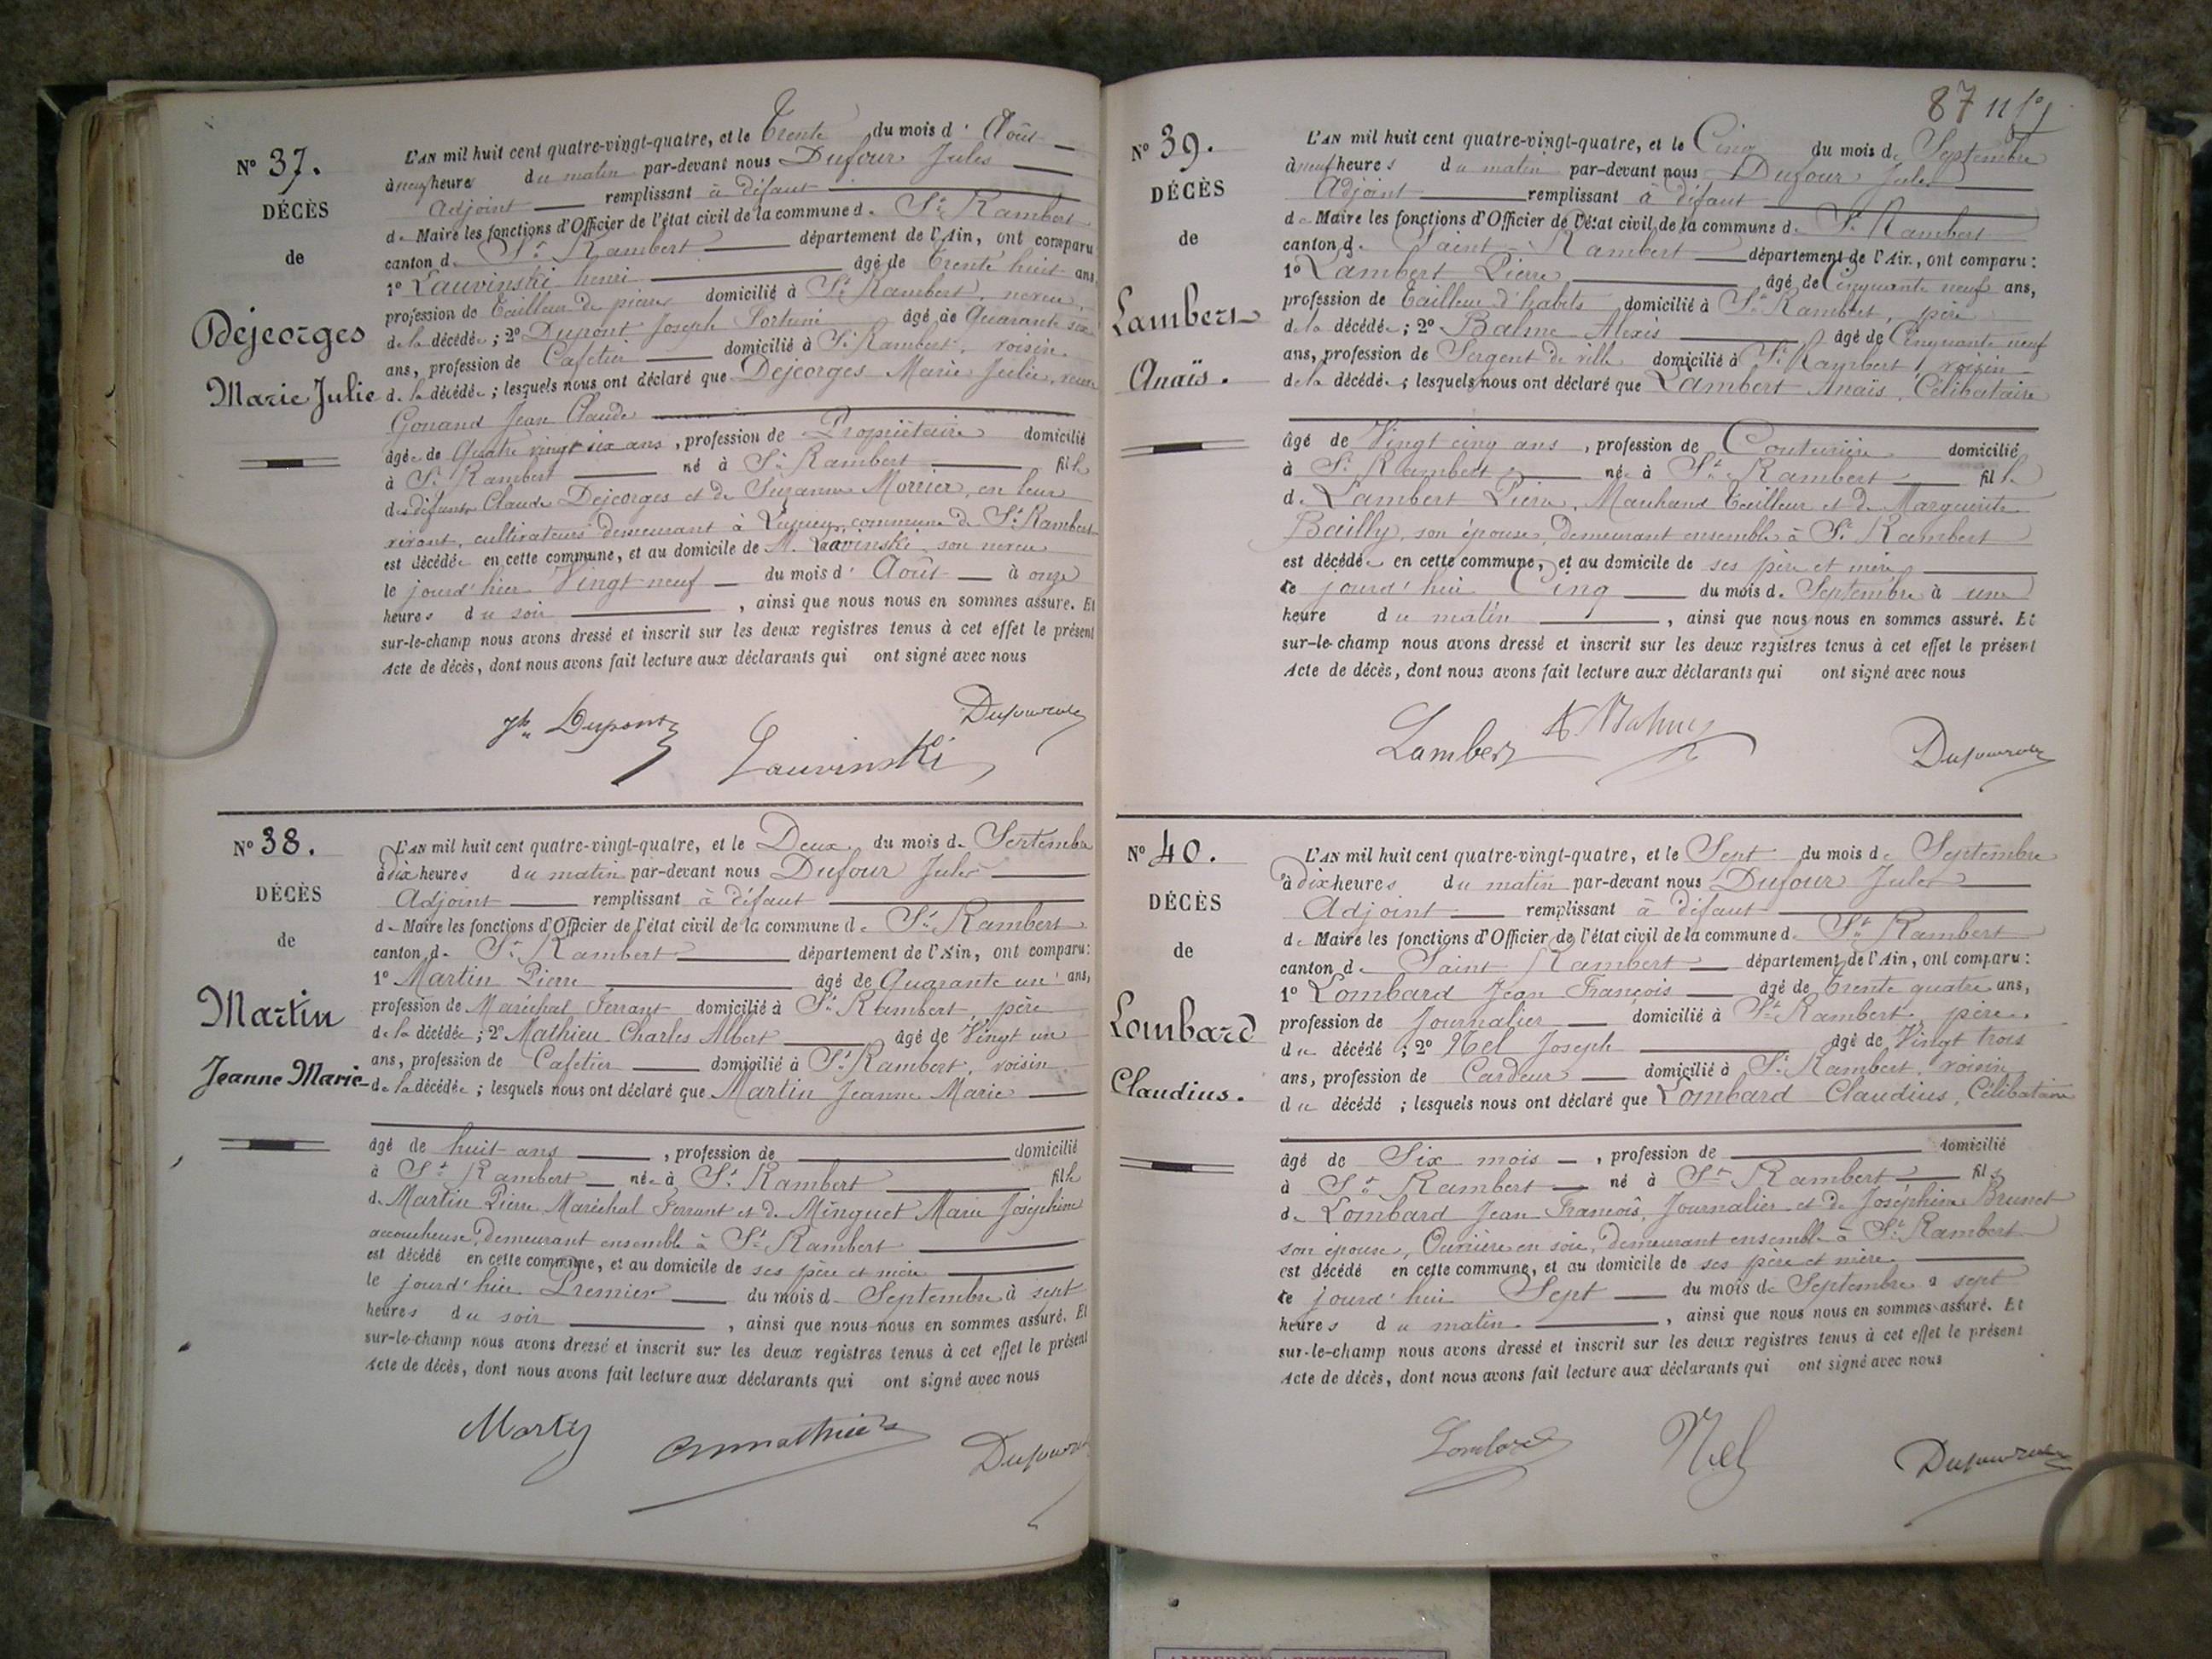 N° 37.
DÉCÈS
de
Dejeorges
Marie Julie
L'AN mil huit cent quatre-vingt-quatre, et le Trente du mois d' Août
à neuf heures du matin par-devant nous Dufour Jules
Adjoint remplissant à défaut
de Maire les fonctions d'Officier de l'état civil de la commune de St Rambert
canton de St Rambert département de l'Ain, ont comparu
1° Lauvinski henri âgé de trente huit ans
profession de Tailleur de pierres domicilié à St Rambert, neveu
de la décédée ; 2° Dupont Joseph Fortuné âgé de Quarante six
ans, profession de Cafetier domicilié à St Rambert, voisin
de la décédée ; lesquels nous ont déclaré que Dejeorges Marie Julie, veuve
Gonand Jean Claude
âgée de Quatre vingt six ans, profession de Propriétaire domicilié
à St Rambert né à St Rambert fille
des défunts Claude Dejeorges et de Suzanne Morrier, en leur
vivant, cultivateurs demeurant à commune de St Rambert
est décédée en cette commune, et au domicile de M. Lauvinski son neveu
le jourd'hier Vingt neuf du mois d' Août à onze
heures du soir , ainsi que nous nous en sommes assuré. Et
sur-le-champ nous avons dressé et inscrit sur les deux registres tenus à cet effet le présent
Acte de décès, dont nous avons fait lecture aux déclarants qui ont signé avec nous
Jh Dupont
Lauvinski
Dufour Jules
N° 38.
DÉCÈS
de
Martin
Jeanne Marie
L'AN mil huit cent quatre-vingt-quatre, et le Deux du mois de Septembre
à dix heures du matin par-devant nous Dufour Jules
Adjoint remplissant à défaut
de Maire les fonctions d'Officier de l'état civil de la commune de St Rambert
canton de St Rambert département de l'Ain, ont comparu :
1° Martin Pierre âgé de Quarante un ans,
profession de Maréchal Ferrant domicilié à St Rambert, père
de la décédée ; 2° Mathieu Charles Albert âgé de Vingt un
ans, profession de Cafetier domicilié à St Rambert, voisin
de la décédée ; lesquels nous ont déclaré que Martin Jeanne Marie
âgé de huit ans , profession de domicilié
à St Rambert née à St Rambert fille
de Martin Pierre Maréchal Ferrant et de Minguet Marie Joséphine
accoucheuse, demeurant ensemble à St Rambert
est décédé en cette commune, et au domicile de ses père et mère
le jourd'hier Premier du mois de Septembre à sept
heures du soir , ainsi que nous nous en sommes assuré. Et
sur-le-champ nous avons dressé et inscrit sur les deux registres tenus à cet effet le présent
Acte de décès, dont nous avons fait lecture aux déclarants qui ont signé avec nous
Martin
Mathieu
Dufour
87
N° 39.
DÉCÈS
de
Lambert
Anaïs.
L'AN mil huit cent quatre-vingt-quatre, et le Cinq du mois de Septembre
à neuf heures du matin par-devant nous Dufour Jules
Adjoint remplissant à défaut
de Maire les fonctions d'Officier de l'état civil de la commune de St Rambert
canton de Saint-Rambert département de l'Ain, ont comparu :
1° Lambert Pierre âgé de Cinquante neuf ans,
profession de tailleur d'habits domicilié à St Rambert, père
de la décédée ; 2° Balme Alexis âgé de Cinquante neuf
ans, profession de Sergent de ville domicilié à St Rambert, voisin
de la décédée ; lesquels nous ont déclaré que Lambert Anaïs, Célibataire
âgé de Vingt cinq ans , profession de Couturière domicilié
à St Rambert née à St Rambert fille
de Lambert Pierre, Marchand Tailleur et de Marguerite
Bailly, son épouse, demeurant ensemble à St Rambert
est décédée en cette commune, et au domicile de ses père et mère
ce jourd'hui Cinq du mois de Septembre à une
heure du matin , ainsi que nous nous en sommes assuré. Et
sur-le-champ nous avons dressé et inscrit sur les deux registres tenus à cet effet le présent
Acte de décès, dont nous avons fait lecture aux déclarants qui ont signé avec nous
Lambert
A. Balme
Dufour Jules
N° 40.
DÉCÈS
de
Lombard
Claudius.
L'AN mil huit cent quatre-vingt-quatre, et le Sept du mois de Septembre
à dix heures du matin par-devant nous Dufour Jules
Adjoint remplissant à défaut
de Maire les fonctions d'Officier de l'état civil de la commune de St Rambert
canton de Saint Rambert département de l'Ain, ont comparu :
1° Lombard Jean François âgé de trente quatre ans,
profession de Journalier domicilié à St Rambert, père.
du décédé ; 2° Nel Joseph âgé de Vingt trois
ans, profession de Cardeur domicilié à St Rambert, voisin
du décédé ; lesquels nous ont déclaré que Lombard Claudius, Célibataire
âgé de Six mois , profession de domicilié
à St Rambert né à St Rambert fils
de Lombard Jean François, Journalier et de Joséphine Brunet
son épouse, Ouvrière en soie, demeurant ensemble à St Rambert
est décédé en cette commune, et au domicile de ses père et mère
ce jourd'hui Sept du mois de Septembre à sept
heures du matin , ainsi que nous nous en sommes assuré. Et
sur-le-champ nous avons dressé et inscrit sur les deux registres tenus à cet effet le présent
Acte de décès, dont nous avons fait lecture aux déclarants qui ont signé avec nous
Lombard
Nel
Dufour Jules